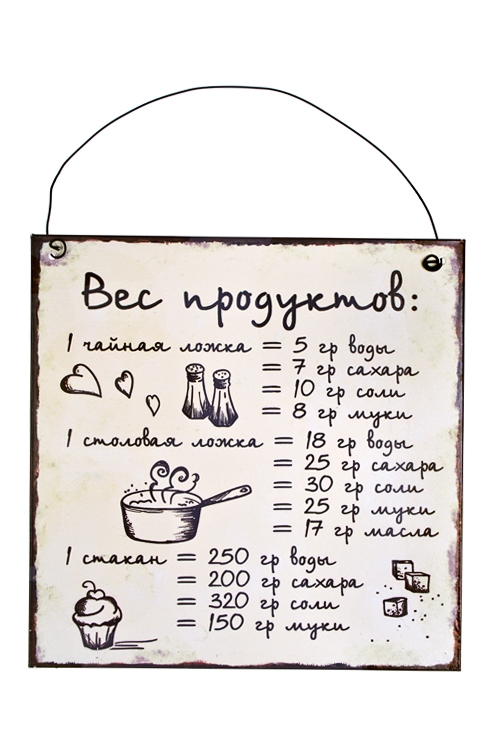 Вес продуктов:
1 чайная ложка = 5 гр воды
= 7 гр сахара
= 10 гр соли
= 8 гр муки
1 столовая ложка = 18 гр воды
= 25 гр сахара
= 30 гр соли
= 25 гр муки
= 17 гр масла
1 стакан = 250 гр воды
= 200 гр сахара
= 320 гр соли
= 150 гр муки